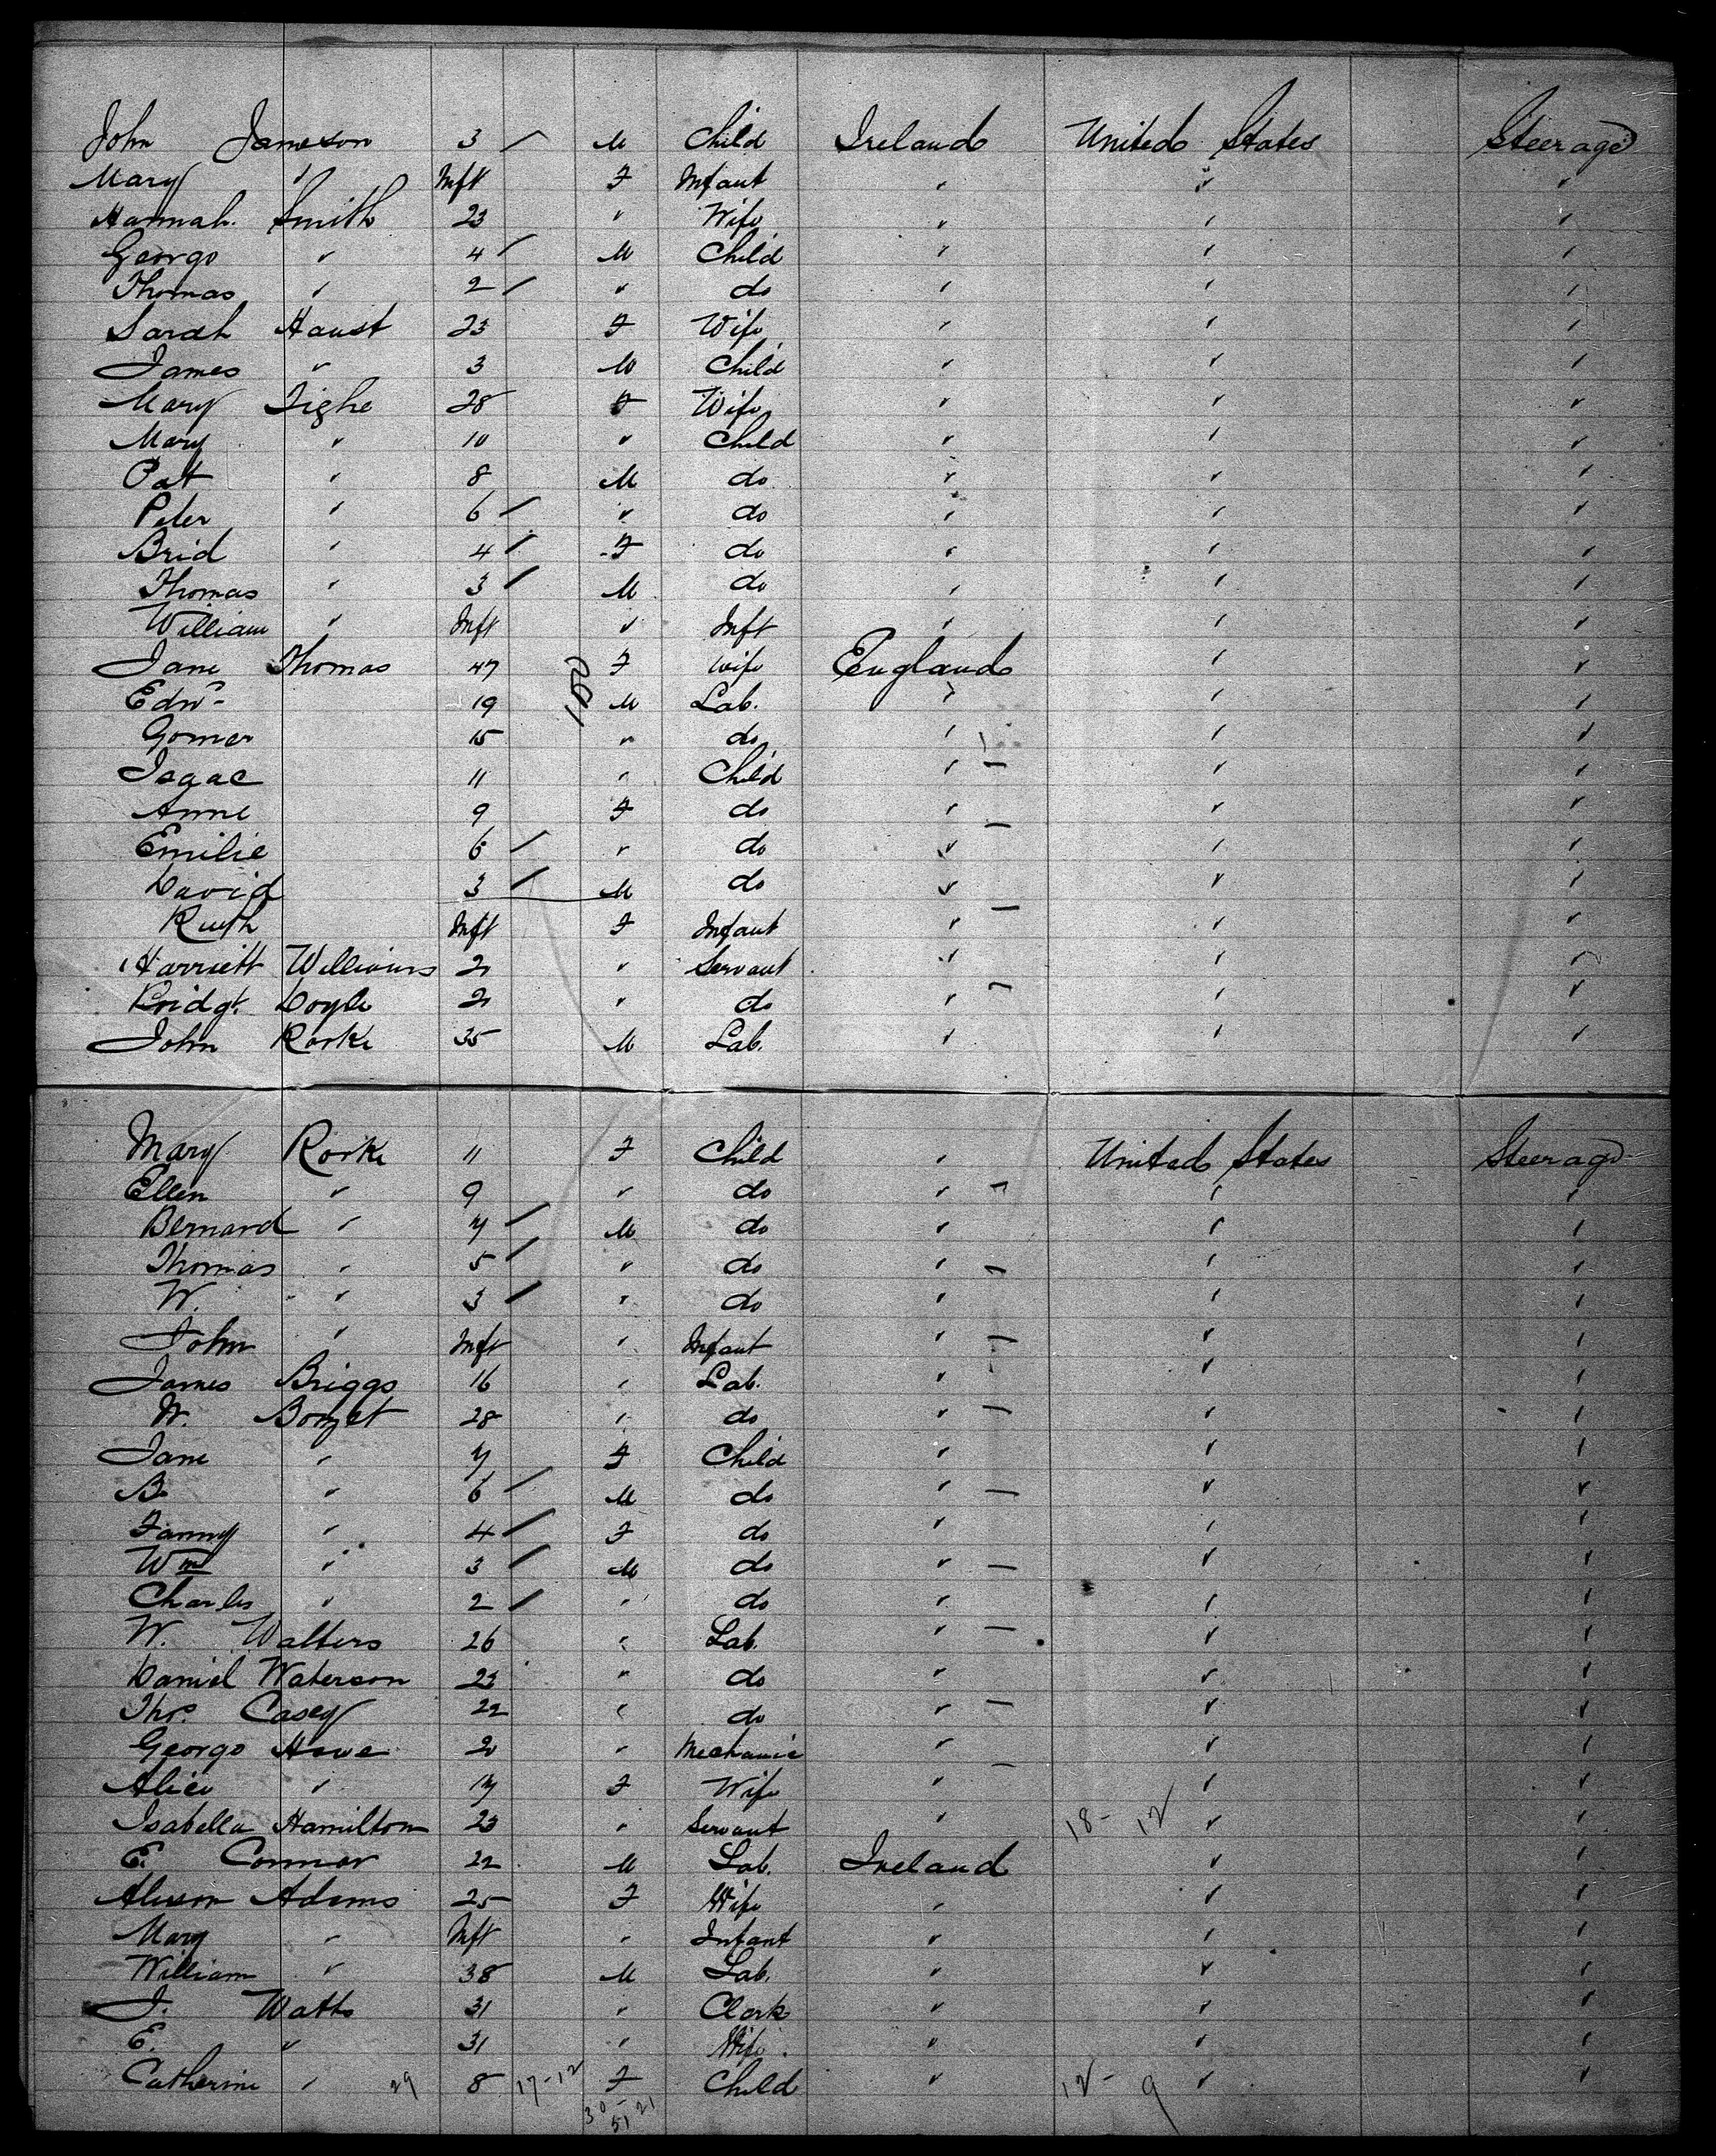 John Jameson 3 / M Child Ireland United States Steerage
Mary " Inft F Infant " " "
Hannah Smith 23 " Wife " " "
George " 4 / M Child " " "
Thomas " 2 / " do " " "
Sarah Haust 23 F Wife " " "
James " 3 M Child " " "
Mary Tighe 28 F Wife " " "
Mary " 10 " Child " " "
Pat " 8 M do " " "
Peter " 6 / " do " " "
Brid " 4 / F do " " "
Thomas " 3 / M do " " "
William " Inft " Inft " " "
Jane Thomas 47 F Wife England " "
Edwd 19 M Lab. " " "
Gomer 15 " do " " "
Isaac 11 " Child " " "
Anne 9 F do " " "
Emilie 6 / " do " " "
David 3 / M do " " "
Ruth Inft F Infant " " "
Harriett Williams " Servant " " "
Bridgt. Doyle " do " " "
John Rorke 35 M Lab. " " "
Mary Rorke 11 F Child " United States Steerage
Ellen " 9 " do " " "
Bernard " 7 / M do " " "
Thomas " 5 / " do " " "
W. " 3 / " do " " "
John " Inft " Infant " " "
James Briggs 16 " Lab. " " "
W. 28 " do " " "
Jane " 7 F Child " " "
B. " 6 / M do " " "
Fanny " 4 / F do " " "
Wm " 3 / M do " " "
Charles " 2 / " do " " "
W. Walters 26 " Lab. " " "
Daniel Waterson 23 " do " " "
Thos. Casey 22 " do " " "
George Howe 20 " Mechanic " " "
Alice " 17 F Wife " " "
Isabella Hamilton 23 " Servant " 18- 12 " "
E. Connor 22 M Lab. Ireland " "
Adams 25 F Wife " " "
Mary " Inft " Infant " " "
William " 38 M Lab. " " "
J. Watts 31 " Clerk " " "
E. " 31 " Wife " " "
Catherine " 29 8 17-12 F Child " 12- 9 " "
30- 21
51